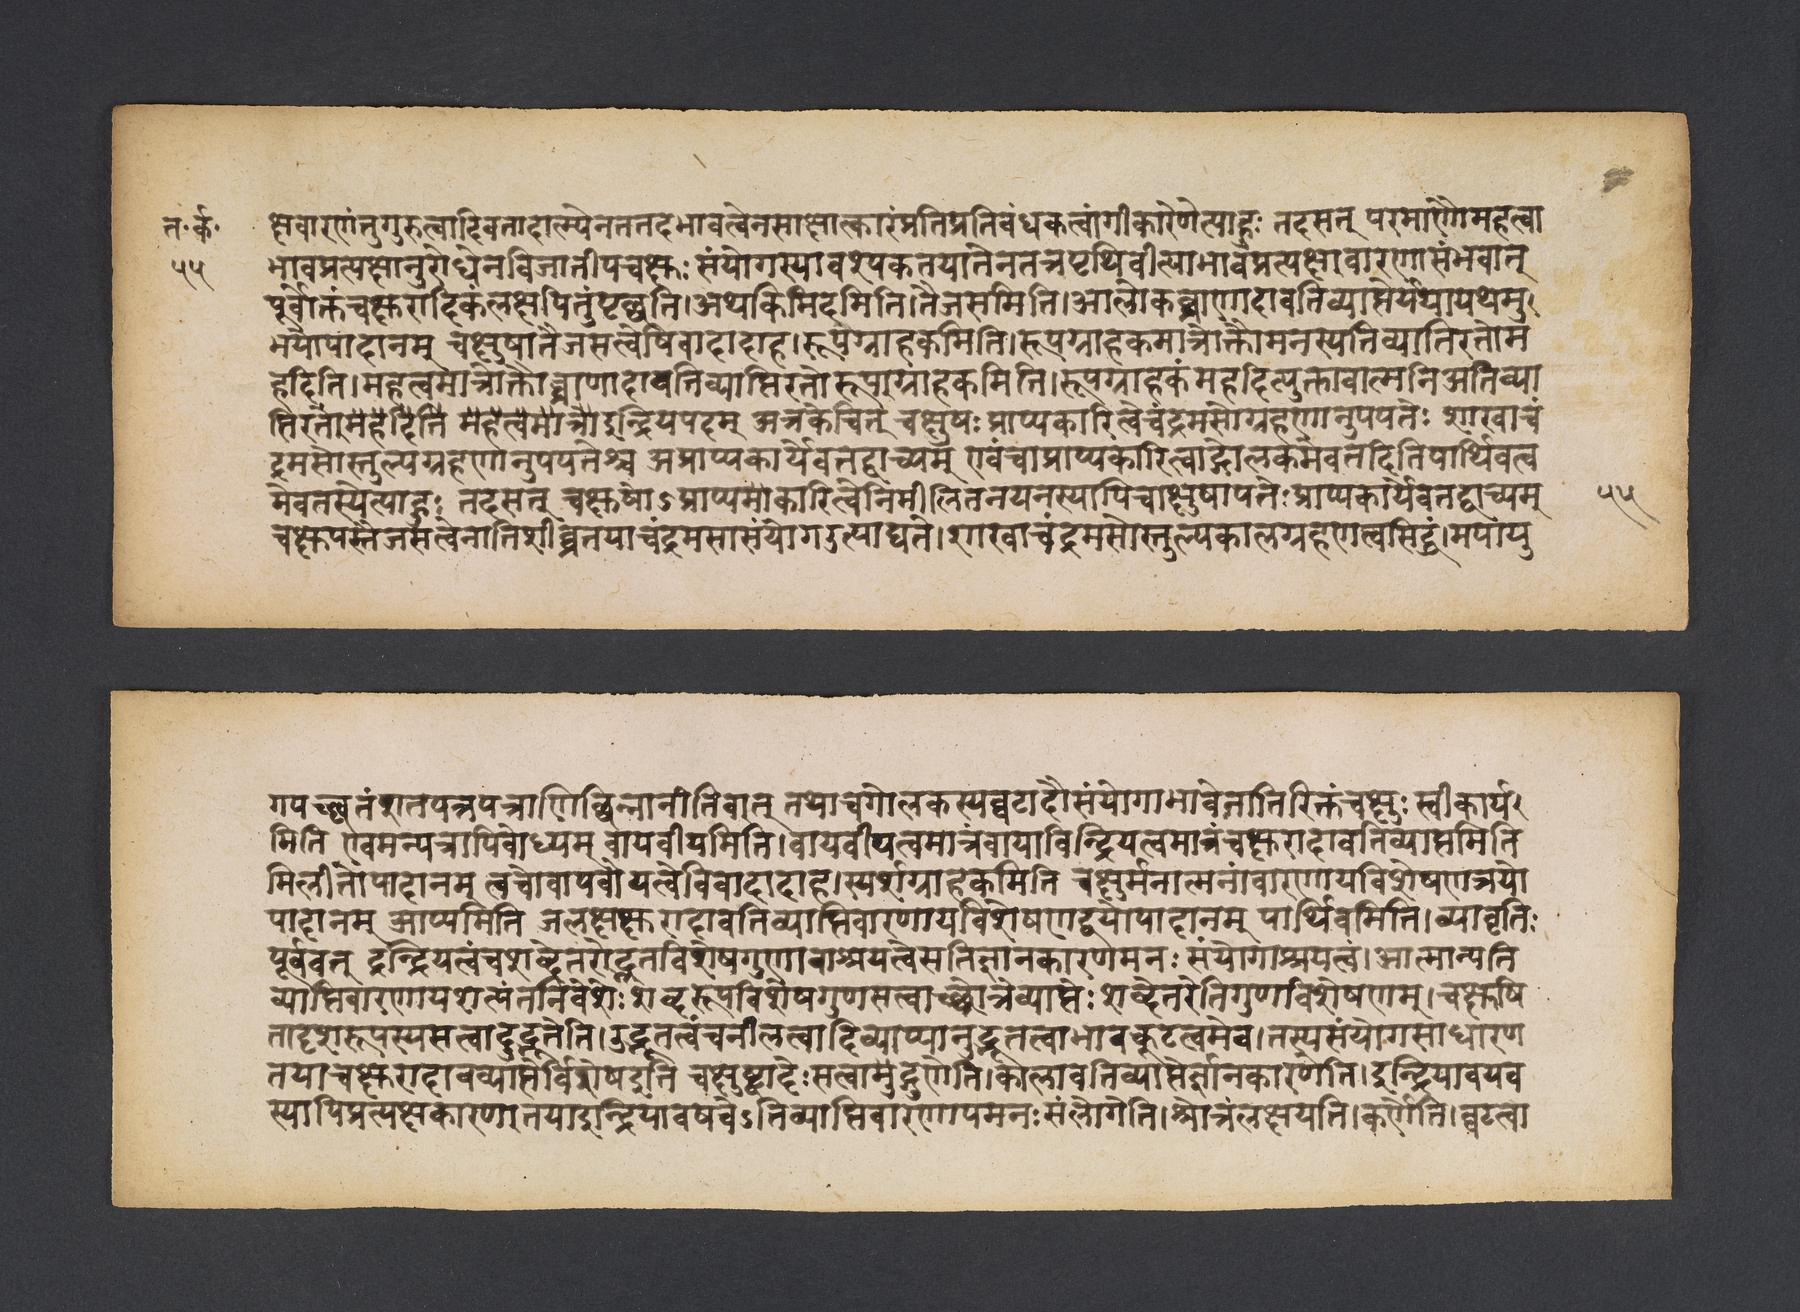 त॰ र्क॰
५५
क्षवारणंतुगुरुत्वादिवतादात्म्येनतत्तदभावत्वेनसाक्षात्कारंप्रतिप्रतिबंधकत्वांगीकारेणेत्याहुः तदसत् परमाणौमहत्वा
भावप्रत्यक्षानुरोधेनविजातीयचक्षुः संयोगस्यावश्यकतयातेनतत्रपृथिवीत्वाभावप्रत्यक्षवारणासंभवात्
पूर्वोक्तंचक्षुरादिकंलक्षयितुंपृच्छति।अथकिमिदमिति।तैजसमिति।आलोकघ्राणादावतिव्याप्तेर्यथायथमु
भयोपादानम् चक्षुषातैजसत्वेविवादादाह।रूपग्राहकमिति।रूपग्राहकमात्रोक्तौमनस्यतिव्याप्तिरतोम
हदिति।महत्वमात्रोक्तौघ्राणादावतिव्याप्तिरतोरूपग्राहकमिति।रूपग्राहकंमहदित्युक्तावात्मनिअतिव्या
प्तिरतोमहदिति महत्वमात्रोइन्द्रियपदम् अत्रकेचित् चक्षुषः प्राप्यकारित्वेचंद्रमसोग्रहणानुपपतेः शाखाचं
द्रमसोस्तुल्यग्रहणानुपपतेश्च अप्राप्यकार्येवतद्वाच्यम् एवंचाप्राप्यकारित्वाद्गोलकमेवतदितिपार्थिवत्व
मेवतस्येत्याहुः तदसत् चक्षुषोऽप्राप्यमाकारित्वेनिमीलितनयनस्यापिचाक्षुषापतेः प्राप्यकार्येवतद्वाच्यम्
चक्षुषस्तैजसत्वेनातिशीघ्रतयाचंद्रमसासंयोगउत्पाद्यते।शाखाचंद्रमसोस्तुल्यकालग्रहणत्वसिद्धं।मपायु
५५
गपच्छतंशतपत्रपत्राणिछिन्नानीतिवात् तथाचगोलकस्यघटादौसंयोगाभावेनातिरिक्तंचक्षुः स्वीकार्य
मिति एवमन्यत्रापिबोध्यम् वायवीयमिति।वायवीयत्वमात्रंवायाविन्द्रियत्वमात्रंचक्षुरादावतिव्याप्तमिति
मिलीतोपादानम् त्वचोवायवीयत्वेविवादादाह।स्पर्शग्राहकमिति चक्षुर्मनात्मनांवारणायविशेषणत्रयो
पादानम् आप्यमिति जलक्षक्षुरादावतिव्याप्तिवारणायविशेषणद्वयोपादानम् पार्थिवमिति।व्यावृतिः
पूर्ववत् इन्द्रियत्वंचशब्देतरोद्भूतविशेषगुणानाश्रयत्वेसतिज्ञानकारणमनः संयोगाश्रयत्वं।आत्मान्यति
व्याप्तिवारणायशत्यंतनिवेशः शब्दरूपविशेषगुणसत्वाच्छ्रोत्रेव्याप्तेः शब्देतरेतिगुणविशेषणम्।चक्षुषि
तादृशरूपस्यसत्वादुद्भूतेति।उद्भूतत्वंचनीलत्वादिव्याप्यानुद्भूतत्वाभावकूटत्वमेव।तस्यसंयोगसाधारण
तयाचक्षुरादावव्याप्तेर्विशेषइति चक्षुष्ट्वादेः सत्वामुद्गुणेति।कालावतिव्याप्तेर्ज्ञानकारणेति।इन्द्रियावयव
स्यापिप्रत्यक्षकारणतयाइन्द्रियावयवेऽतिव्याप्तिवारणायमनः संलोगेति।श्रोत्रंलक्षयति।कर्णेति।घटत्वा